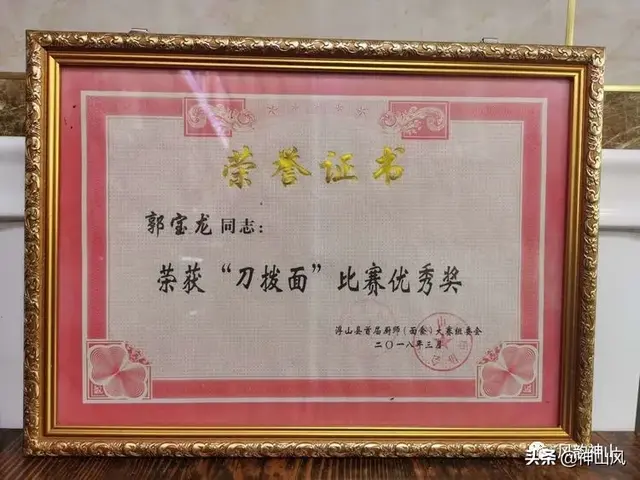 荣誉证书
郭宝龙同志：
荣获“刀拨面”比赛优秀奖
浮山县首届厨师（面食）大赛组委会
二〇一八年三月
风韵神山
头条@神山风